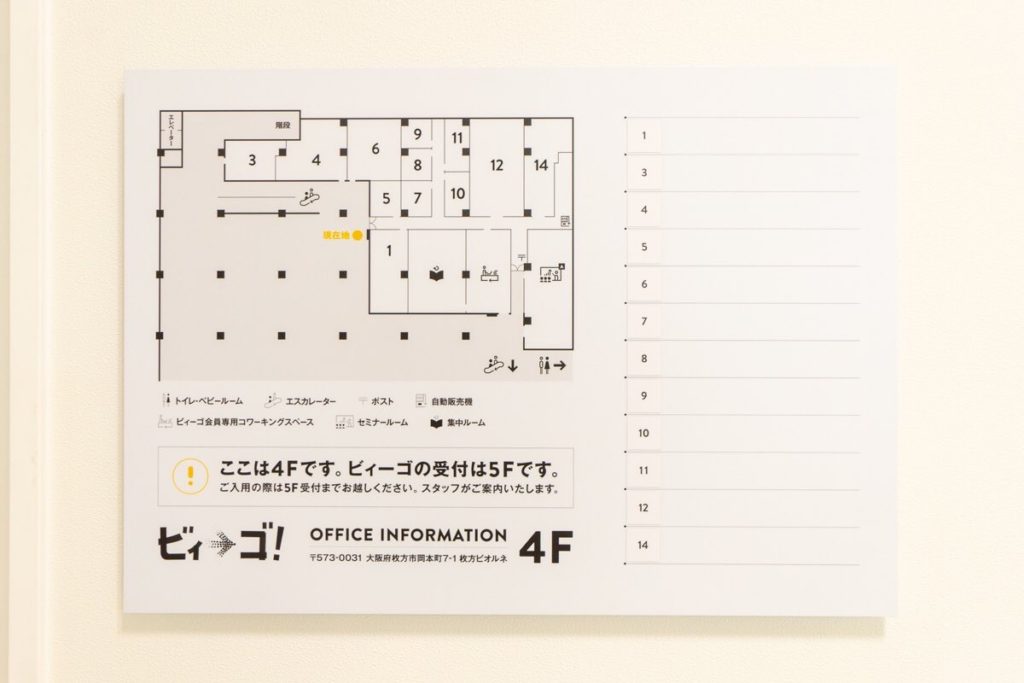 エレベーター
階段
3
4
6
9
8
11
12
14
5
7
10
現在地
1
トイレ・ベビールーム
エスカレーター
ポスト
自動販売機
ビィーゴ会員専用コワーキングスペース
セミナールーム
集中ルーム
ここは4Fです。ビィーゴの受付は5Fです。
ご入用の際は5F受付までお越しください。スタッフがご案内いたします。
ビィーゴ!
OFFICE INFORMATION
〒573-0031 大阪府枚方市岡本町7-1 枚方ビオルネ
4F
1
3
4
5
6
7
8
9
10
11
12
14